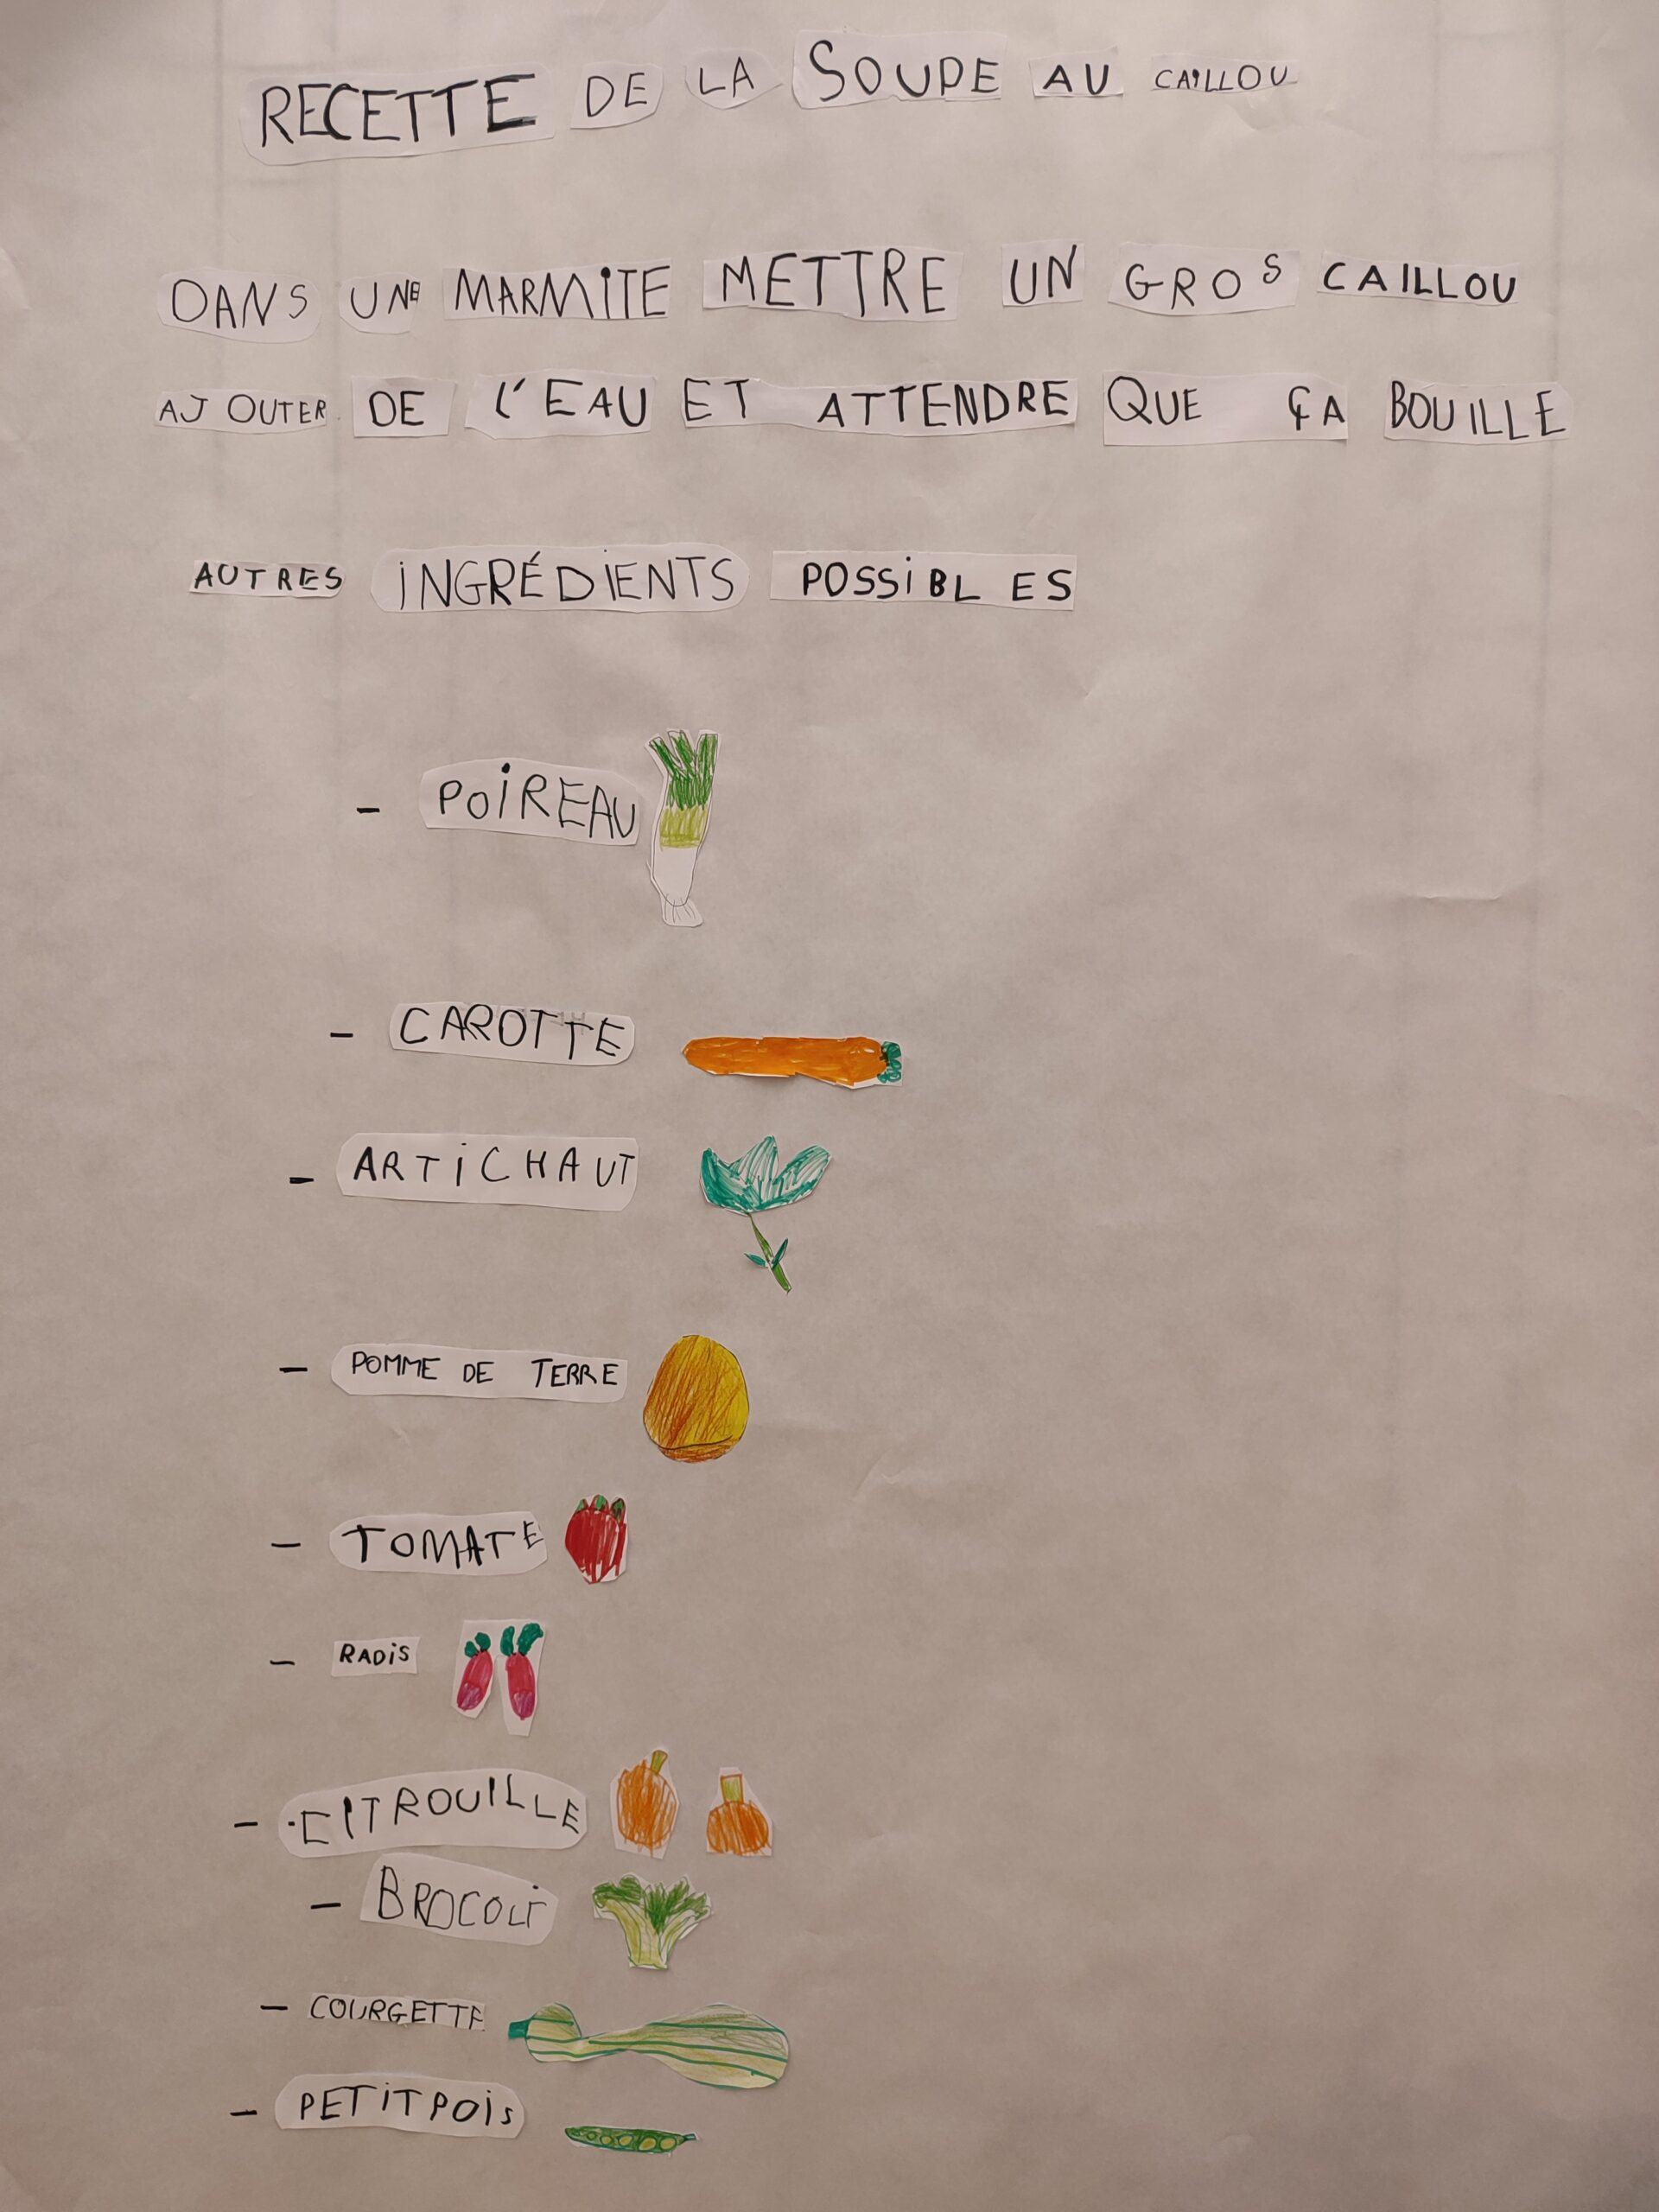 RECETTE DE LA SOUPE AU CAILLOU
DANS UNE MARMITE METTRE UN GROS CAILLOU
AJOUTER DE L'EAU ET ATTENDRE QUE ÇA BOUILLE
AUTRES INGRÉDIENTS POSSIBLES
- POIREAU
- CAROTTE
- ARTICHAUT
- POMME DE TERRE
- TOMATE
- RADIS
- CITROUILLE
- BROCOLI
- COURGETTE
- PETIT POIS